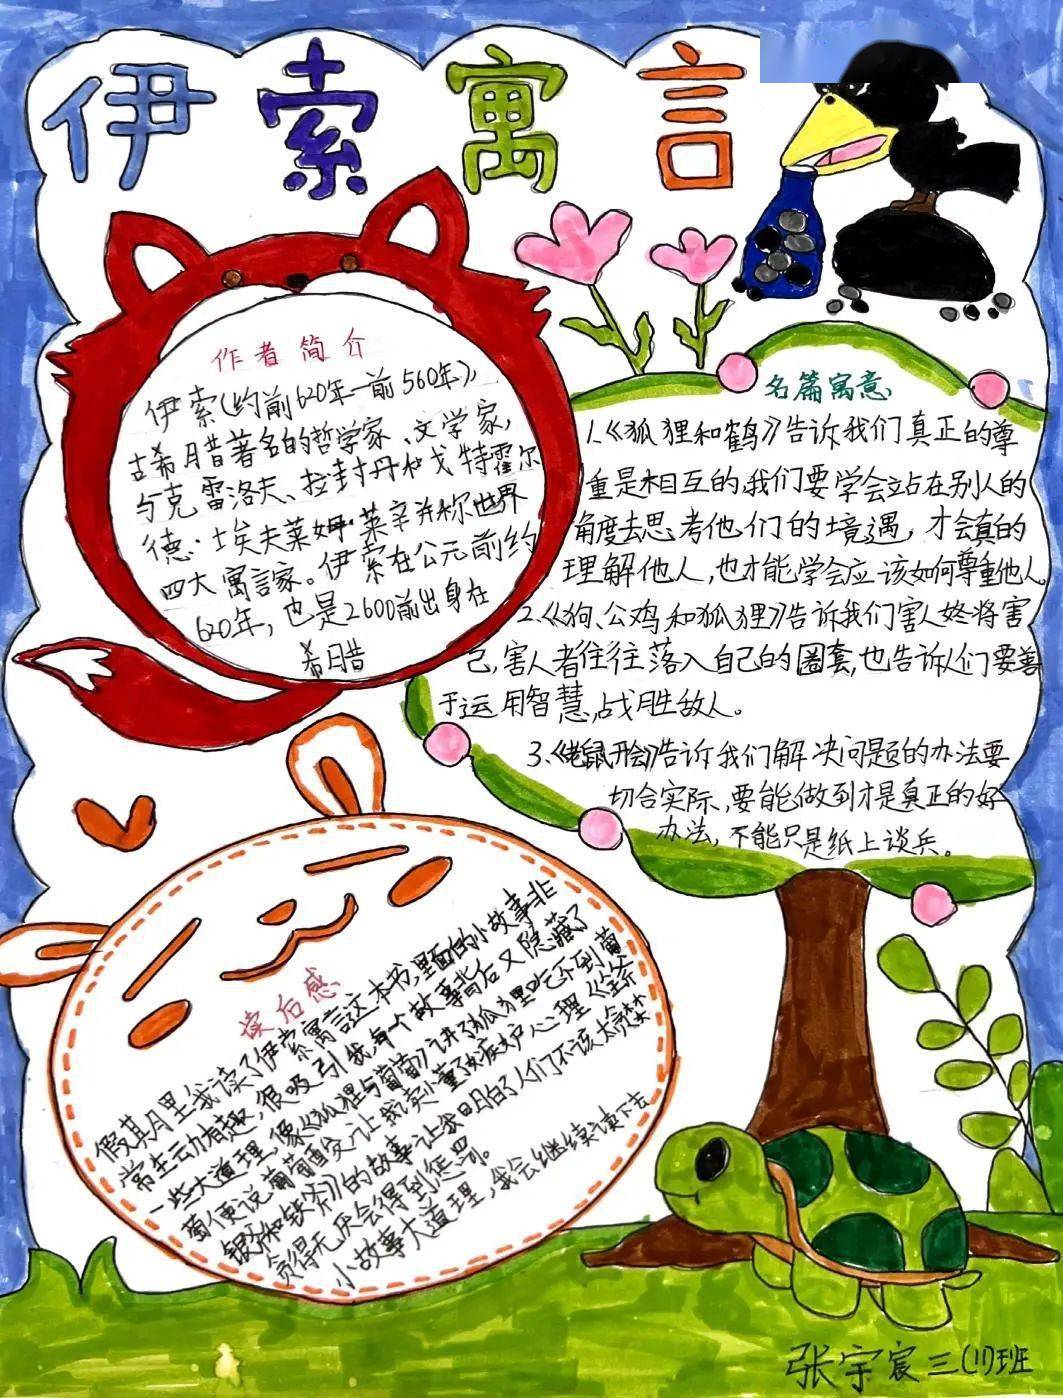 伊索寓言
作者简介
伊索(约前620年—前560年),
古希腊著名的哲学家、文学家,
与克雷洛夫、拉封丹和戈特霍尔
德·埃夫莱姆·莱辛并称世界
四大寓言家。伊索在公元前约
620年,也是2600前出身在
希腊
名篇寓意
1.《狐狸和鹤》告诉我们真正的尊
重是相互的,我们要学会站在别人的
角度去思考他们的境遇,才会真的
理解他人,也才能学会应该如何尊重他人。
2.《狗、公鸡和狐狸》告诉我们害人终将害
己,害人者往往落入自己的圈套,也告诉人们要善
于运用智慧,战胜敌人。
3.《老鼠开会》告诉我们解决问题的办法要
切合实际、要能做到才是真正的好
办法,不能只是纸上谈兵。
读后感
假期里我读了伊索寓言这本书,里面的小故事非
常生动有趣,很吸引我,每个故事背后又隐藏了
一些大道理,像《狐狸与葡萄》讲了狐狸吃不到葡
萄便说葡萄酸,让我读懂了嫉妒心理《金斧
银斧和铁斧》的故事让我明白了人们不该太贪婪
贪得无厌会得到惩罚。
小故事大道理,我会继续读下去
张宇宸 三(11)班